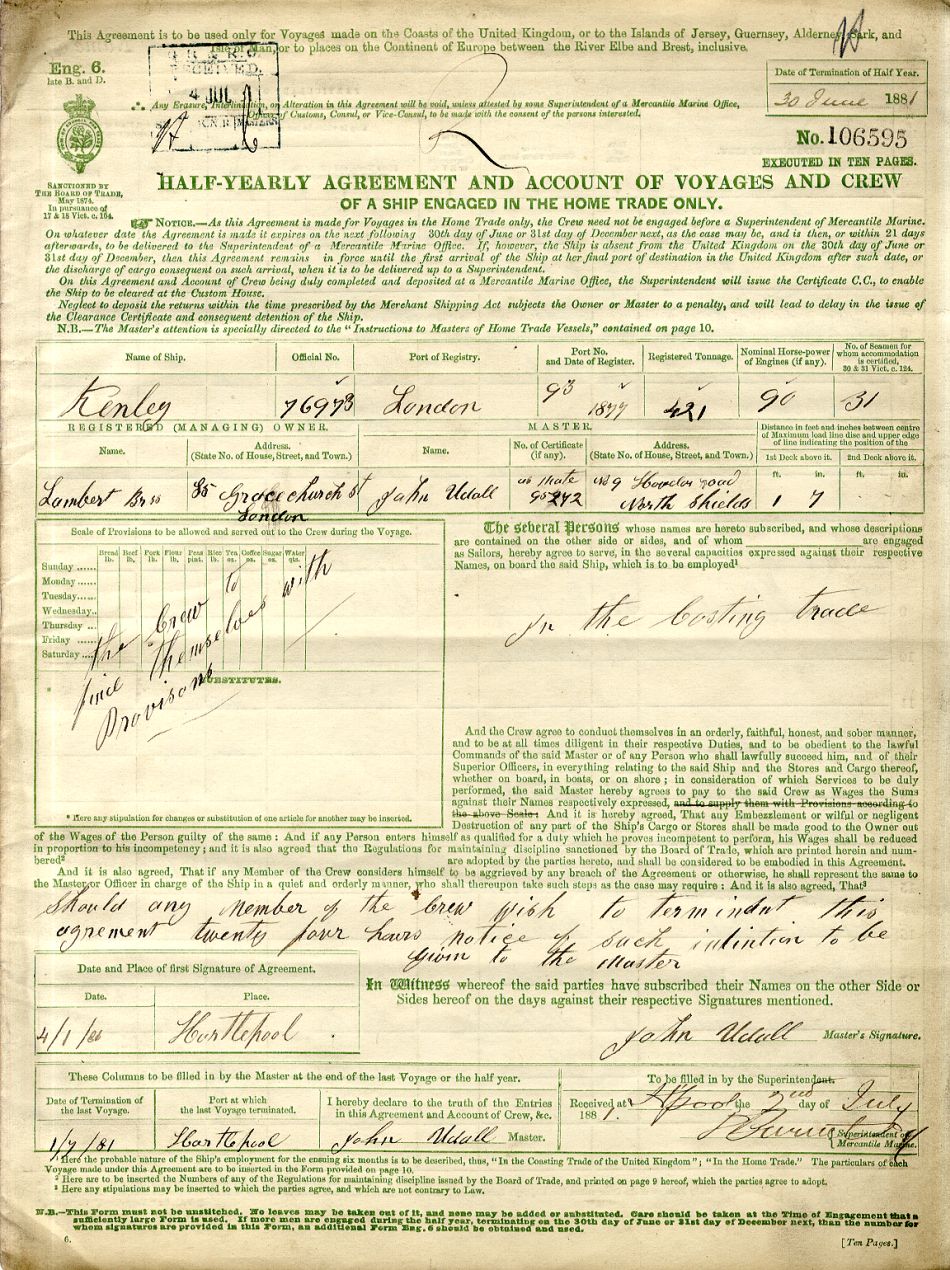 This Agreement is to be used only for Voyages made on the Coasts of the United Kingdom, or to the Islands of Jersey, Guernsey, Alderney, Sark, and
Isle of Man, or to places on the Continent of Europe between the River Elbe and Brest, inclusive.
Eng. 6.
late B. and D.
RECEIVED
4 JUL
Date of Termination of Half Year.
30 June 1881
Any Erasure, Interlineation, or Alteration in this Agreement will be void, unless attested by some Superintendent of a Mercantile Marine Office,
Officer of Customs, Consul, or Vice-Consul, to be made with the consent of the persons interested.
No. 106595
EXECUTED IN TEN PAGES.
SANCTIONED BY
THE BOARD OF TRADE,
May 1874.
In pursuance of
17 & 18 Vict. c. 104.
HALF-YEARLY AGREEMENT AND ACCOUNT OF VOYAGES AND CREW
OF A SHIP ENGAGED IN THE HOME TRADE ONLY.
NOTICE.—As this Agreement is made for Voyages in the Home Trade only, the Crew need not be engaged before a Superintendent of Mercantile Marine.
On whatever date the Agreement is made it expires on the next following 30th day of June or 31st day of December next, as the case may be, and is then, or within 21 days
afterwards, to be delivered to the Superintendent of a Mercantile Marine Office. If, however, the Ship is absent from the United Kingdom on the 30th day of June or
31st day of December, then this Agreement remains in force until the first arrival of the Ship at her final port of destination in the United Kingdom after such date, or
the discharge of cargo consequent on such arrival, when it is to be delivered up to a Superintendent.
On this Agreement and Account of Crew being duly completed and deposited at a Mercantile Marine Office, the Superintendent will issue the Certificate C.C., to enable
the Ship to be cleared at the Custom House.
Neglect to deposit the returns within the time prescribed by the Merchant Shipping Act subjects the Owner or Master to a penalty, and will lead to delay in the issue of
the Clearance Certificate and consequent detention of the Ship.
N.B.—The Master's attention is specially directed to the "Instructions to Masters of Home Trade Vessels," contained on page 10.
Name of Ship. Official No. Port of Registry. Port No. and Date of Register. Registered Tonnage. Nominal Horse-power of Engines (if any). No. of Seamen for whom accommodation is certified, 30 & 31 Vict. c. 124.
Kenley 76973 London 93 1877 421 90 31
REGISTERED (MANAGING) OWNER. MASTER. Distance in feet and inches between centre of Maximum load line disc and upper edge of line indicating the position of the
Name. Address. (State No. of House, Street, and Town.) Name. No. of Certificate (if any). Address. (State No. of House, Street, and Town.) 1st Deck above it. 2nd Deck above it.
ft. in. ft. in.
Lambert Bros 85 Gracechurch st London John Udall as Mate 95242 No 9 road North Shields 1 7
Scale of Provisions to be allowed and served out to the Crew during the Voyage.
Bread lb. Beef lb. Pork lb. Flour lb. Peas pint. Rice lb. Tea oz. Coffee oz. Sugar oz. Water qts.
Sunday
Monday
Tuesday
Wednesday
Thursday
Friday
Saturday
the Crew to
find themselves with
Provisons
SUBSTITUTES.
* Here any stipulation for changes or substitution of one article for another may be inserted.
The several Persons whose names are hereto subscribed, and whose descriptions
are contained on the other side or sides, and of whom are engaged
as Sailors, hereby agree to serve, in the several capacities expressed against their respective
Names, on board the said Ship, which is to be employed¹
In the Costing trade
And the Crew agree to conduct themselves in an orderly, faithful, honest, and sober manner,
and to be at all times diligent in their respective Duties, and to be obedient to the lawful
Commands of the said Master or of any Person who shall lawfully succeed him, and of their
Superior Officers, in everything relating to the said Ship and the Stores and Cargo thereof,
whether on board, in boats, or on shore; in consideration of which Services to be duly
performed, the said Master hereby agrees to pay to the said Crew as Wages the Sums
against their Names respectively expressed, and to supply them with Provisions according to
the above Scale: And it is hereby agreed, That any Embezzlement or wilful or negligent
Destruction of any part of the Ship's Cargo or Stores shall be made good to the Owner out
of the Wages of the Person guilty of the same: And if any Person enters himself as qualified for a duty which he proves incompetent to perform, his Wages shall be reduced
in proportion to his incompetency; and it is also agreed that the Regulations for maintaining discipline sanctioned by the Board of Trade, which are printed herein and num-
bered² are adopted by the parties hereto, and shall be considered to be embodied in this Agreement.
And it is also agreed, That if any Member of the Crew considers himself to be aggrieved by any breach of the Agreement or otherwise, he shall represent the same to
the Master or Officer in charge of the Ship in a quiet and orderly manner, who shall thereupon take such steps as the case may require: And it is also agreed, That³
Should any Member of the Crew wish to termindnt this
agrement twenty four hours notice of such intintion to be
given to the Master
Date and Place of first Signature of Agreement.
Date. Place.
4/1/81 Hartlepool
In Witness whereof the said parties have subscribed their Names on the other Side or
Sides hereof on the days against their respective Signatures mentioned.
John Udall Master's Signature.
These Columns to be filled in by the Master at the end of the last Voyage or the half year.
Date of Termination of the last Voyage. Port at which the last Voyage terminated. I hereby declare to the truth of the Entries in this Agreement and Account of Crew, &c.
1/7/81 Hartlepool John Udall Master.
To be filled in by the Superintendent.
Received at H'pool the 2nd day of July
1881.
Superintendent of Mercantile Marine.
¹ Here the probable nature of the Ship's employment for the ensuing six months is to be described, thus, "In the Coasting Trade of the United Kingdom"; "In the Home Trade." The particulars of each
Voyage made under this Agreement are to be inserted in the Form provided on page 10.
² Here are to be inserted the Numbers of any of the Regulations for maintaining discipline issued by the Board of Trade, and printed on page 9 hereof, which the parties agree to adopt.
³ Here any stipulations may be inserted to which the parties agree, and which are not contrary to Law.
N.B.—This Form must not be unstitched. No leaves may be taken out of it, and none may be added or substituted. Care should be taken at the Time of Engagement that a
sufficiently large Form is used. If more men are engaged during the half year, terminating on the 30th day of June or 31st day of December next, than the number for
whom signatures are provided in this Form, an additional Form Eng. 6 should be obtained and used.
6.
[Ten Pages.]